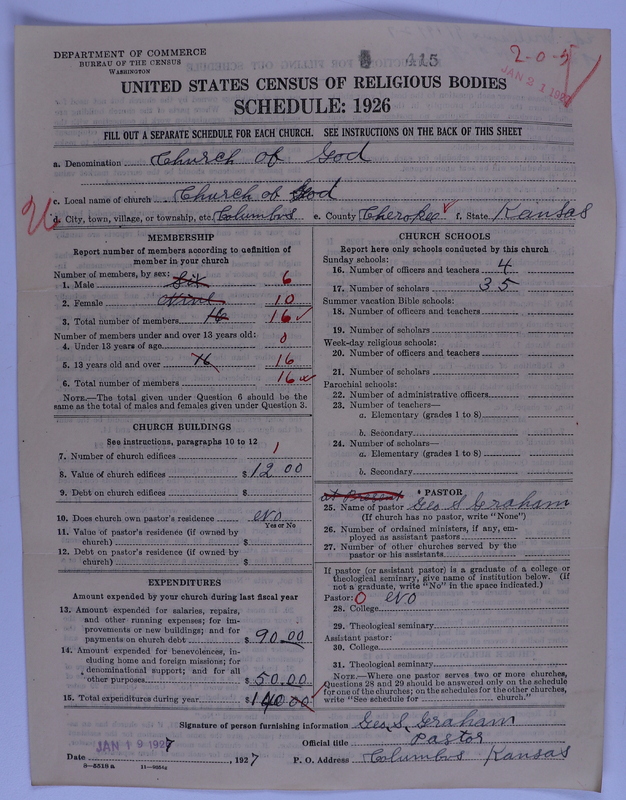 DEPARTMENT OF COMMERCE
BUREAU OF THE CENSUS
WASHINGTON
415
2-0-5
JAN 21 1927
UNITED STATES CENSUS OF RELIGIOUS BODIES
SCHEDULE: 1926
FILL OUT A SEPARATE SCHEDULE FOR EACH CHURCH. SEE INSTRUCTIONS ON THE BACK OF THIS SHEET
a. Denomination Church of God
c. Local name of church Church of God
d. City, town, village, or township, etc. Columbus e. County Cherokee f. State Kansas
MEMBERSHIP
Report number of members according to definition of member in your church
Number of members, by sex:
1. Male Six 6
2. Female Nine 10
3. Total number of members 16 16
Number of members under and over 13 years old:
4. Under 13 years of age 0
5. 13 years old and over 16 16
6. Total number of members 16
NOTE.—The total given under Question 6 should be the same as the total of males and females given under Question 3.
CHURCH BUILDINGS
See instructions, paragraphs 10 to 12
7. Number of church edifices 1
8. Value of church edifices $ 1200
9. Debt on church edifices $
10. Does church own pastor's residence No
Yes or No
11. Value of pastor's residence (if owned by church) $
12. Debt on pastor's residence (if owned by church) $
EXPENDITURES
Amount expended by your church during last fiscal year
13. Amount expended for salaries, repairs, and other running expenses; for improvements or new buildings; and for payments on church debt $ 90.00
14. Amount expended for benevolences, including home and foreign missions; for denominational support; and for all other purposes $ 50.00
15. Total expenditures during year $ 140.00
CHURCH SCHOOLS
Report here only schools conducted by this church
Sunday schools:
16. Number of officers and teachers 4
17. Number of scholars 35
Summer vacation Bible schools:
18. Number of officers and teachers
19. Number of scholars
Week-day religious schools:
20. Number of officers and teachers
21. Number of scholars
Parochial schools:
22. Number of administrative officers
23. Number of teachers—
a. Elementary (grades 1 to 8)
b. Secondary
24. Number of scholars—
a. Elementary (grades 1 to 8)
b. Secondary
PASTOR
25. Name of pastor Geo S Graham
(If church has no pastor, write "None")
26. Number of ordained ministers, if any, employed as assistant pastors
27. Number of other churches served by the pastor or his assistants
If pastor (or assistant pastor) is a graduate of a college or theological seminary, give name of institution below. (If not a graduate, write "No" in the space indicated.)
Pastor: 0 No
28. College
29. Theological seminary
Assistant pastor:
30. College
31. Theological seminary
NOTE.—Where one pastor serves two or more churches, Questions 28 and 29 should be answered only on the schedule for one of the churches; on the schedules for the other churches, write "See schedule for church."
Signature of person furnishing information Geo. S. Graham
JAN 19 1927
Official title Pastor
Date , 1927 P. O. Address Columbus Kansas
8—5518a